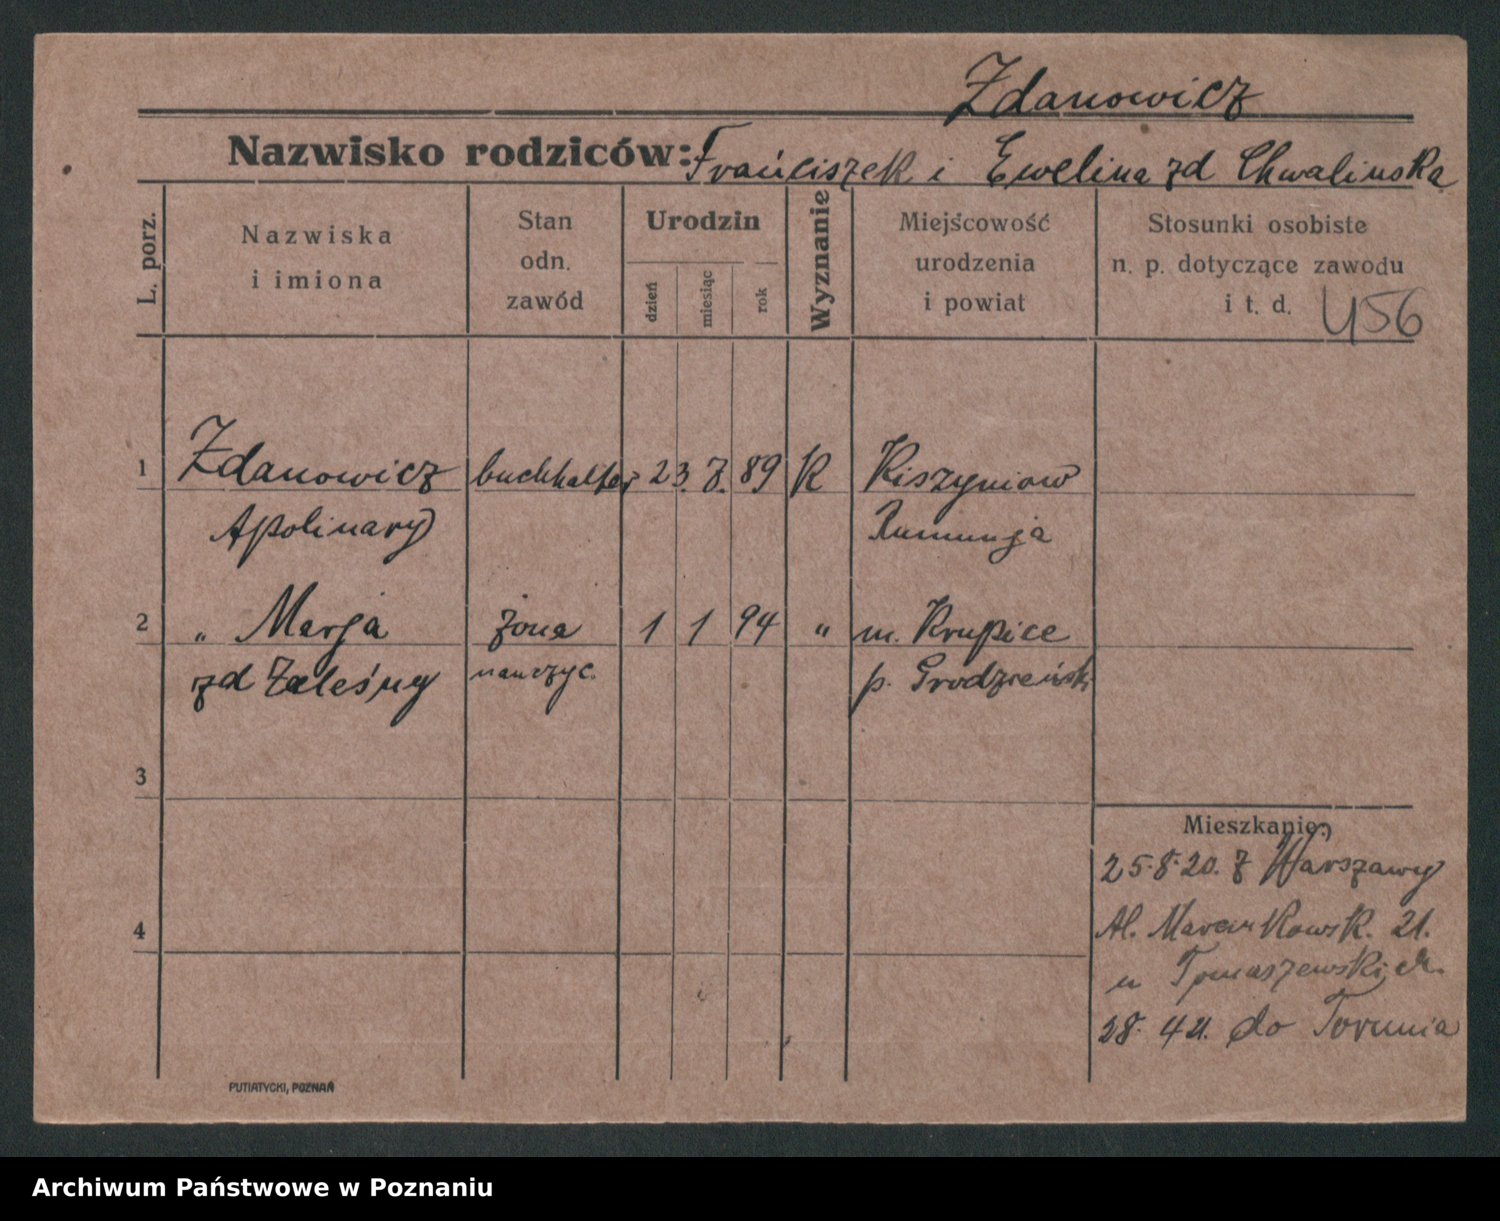 Zdanowicz
Nazwisko rodziców: Franciszek i Ewelina zd Chwalinska
L. porz.
Nazwiska i imiona
Stan odn. zawód
Urodzin
dzień
miesiąc
rok
Wyznanie
Miejscowość urodzenia i powiat
Stosunki osobiste n. p. dotyczące zawodu i t. d.
456
1 Zdanowicz buchhalter 23. 7. 89 K Kiszyniow
Apolinary Rumunja
2 " Marja żona 1 1 94 " m. Krupice
zd Zaleśny nauczyc. p. Grodzieńsk
3
4
Mieszkanie:
25.8.20. z Warszawy
Al. Marcinkowsk. 21.
u Tomaszewskich.
28. 4 21. do Torunia
PUTIATYCKI, POZNAŃ
Archiwum Państwowe w Poznaniu